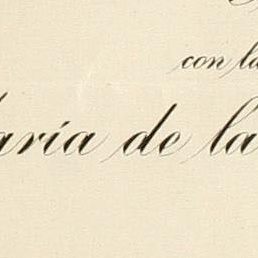 con la
aría de la